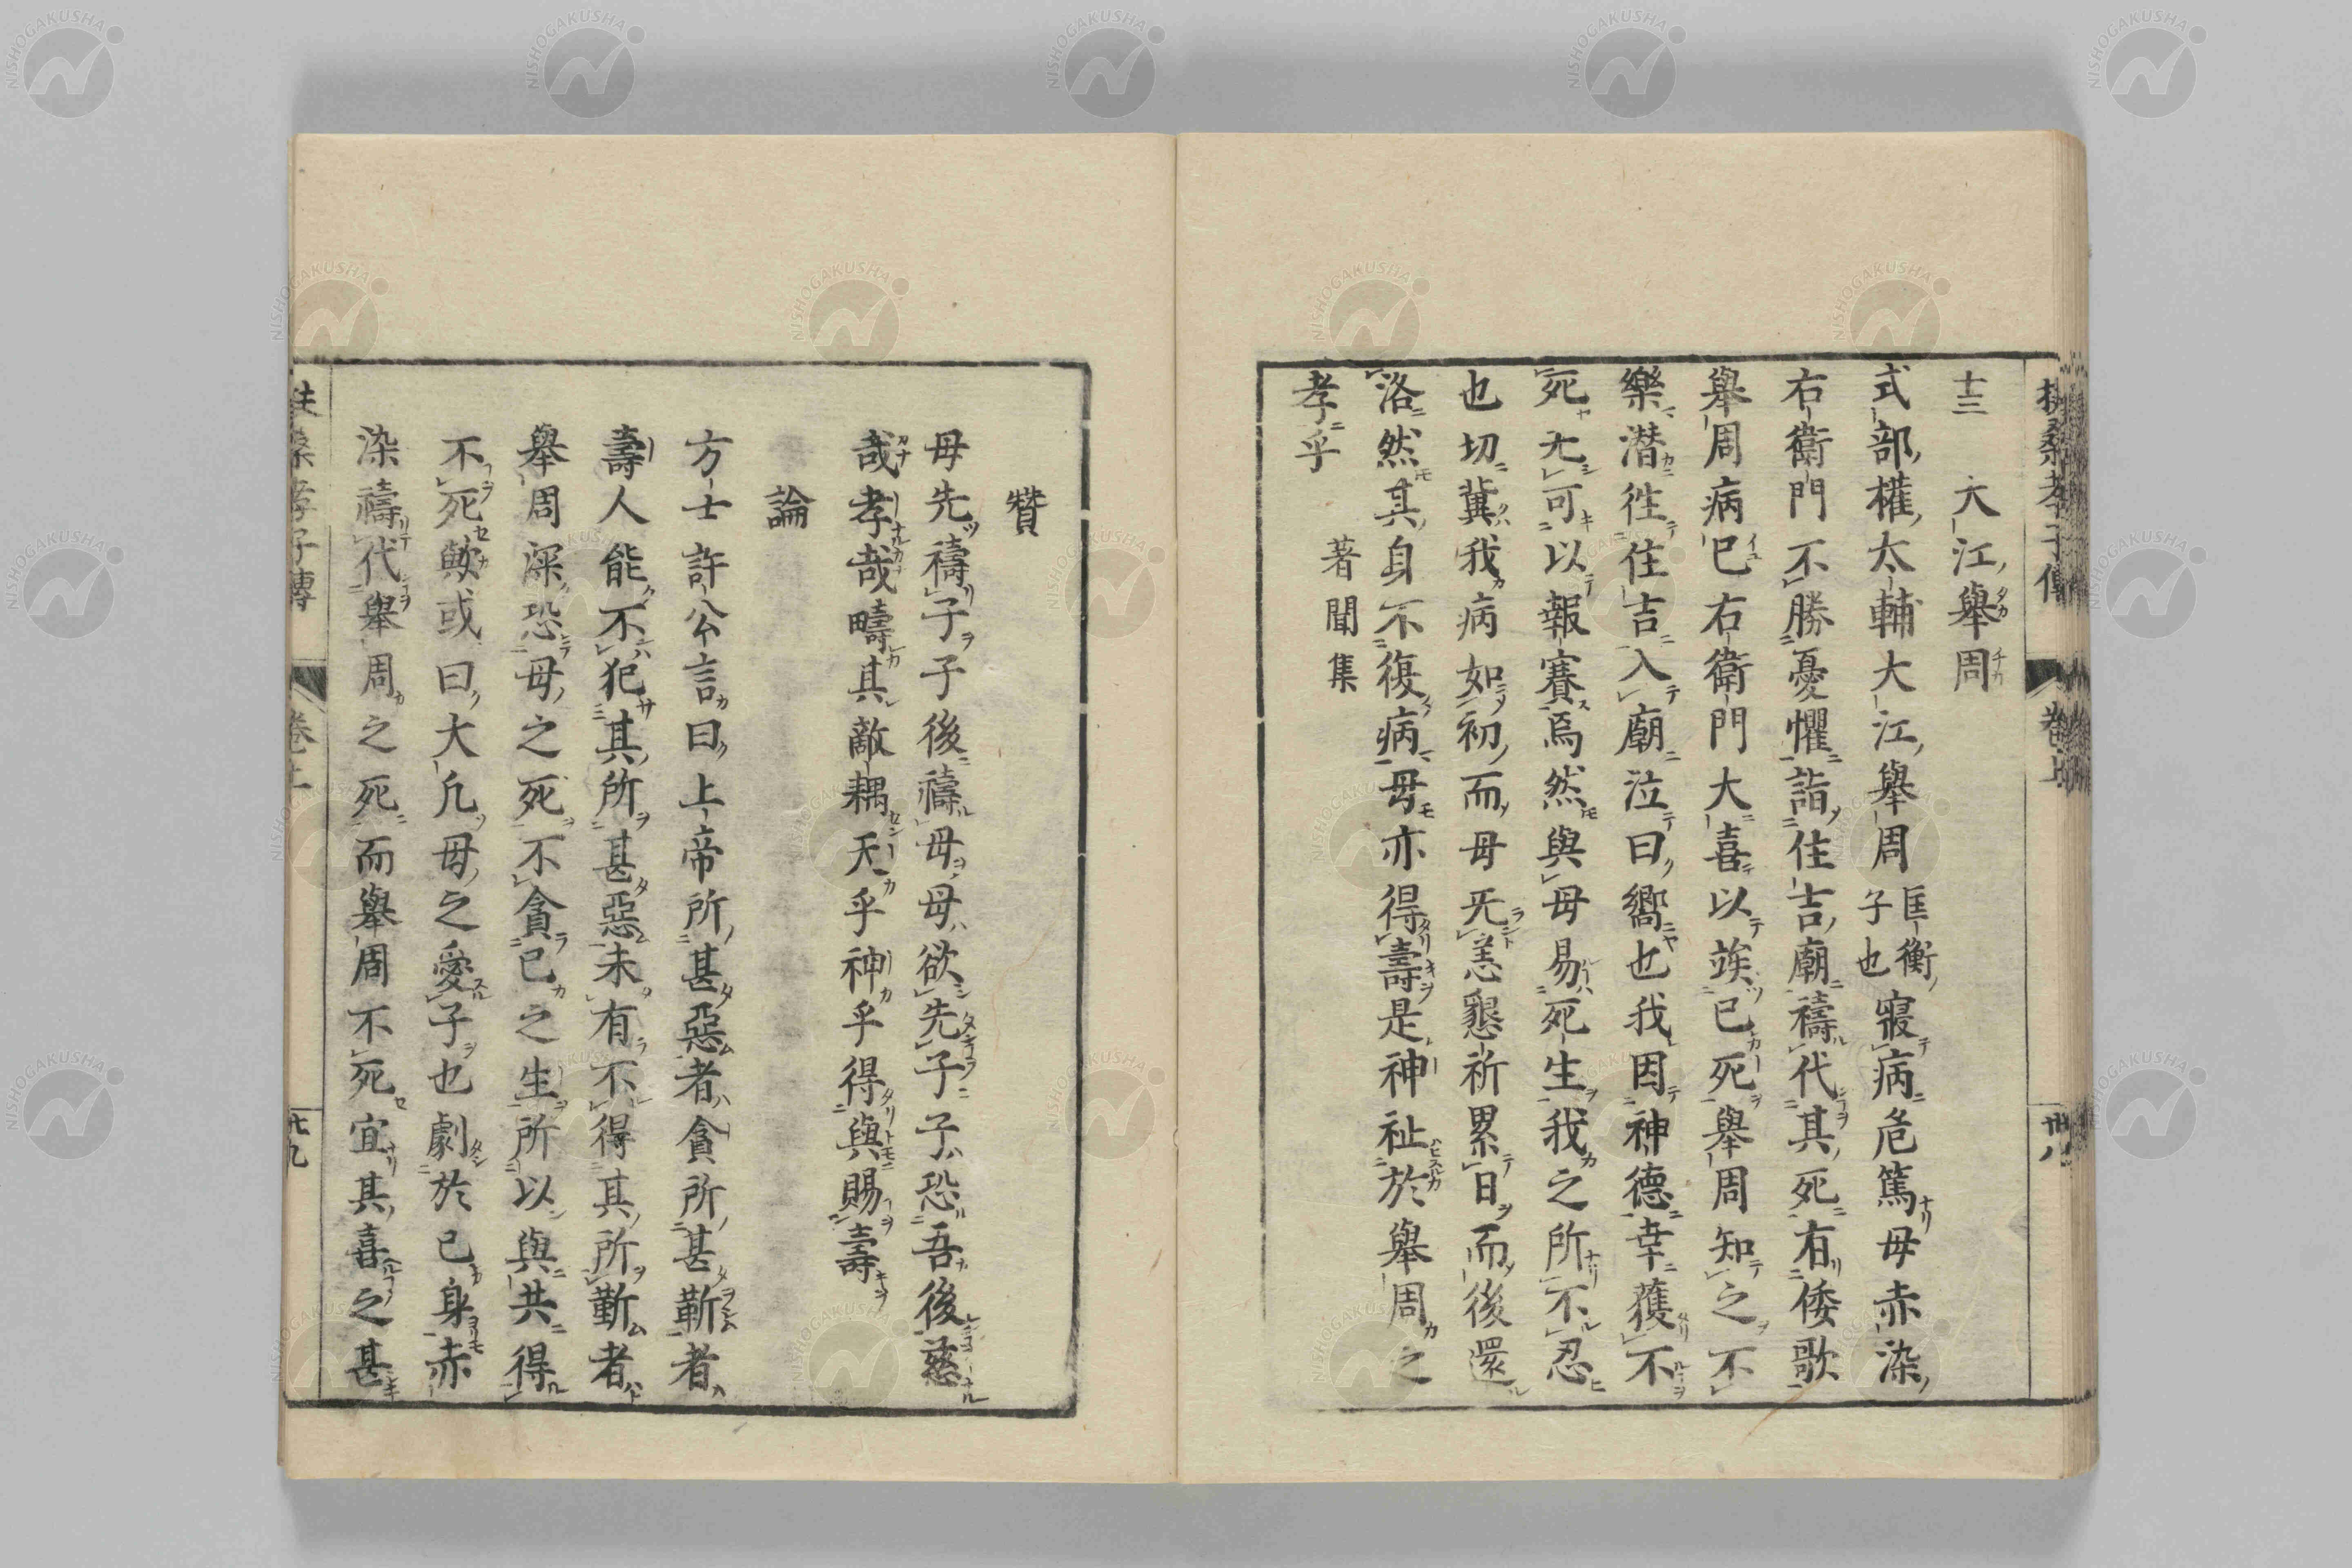 扶桑孝子傳 卷上 卅八
十三 大江舉周
式部權太輔大江舉周匡衡子也寢病危篤母赤染
右衛門不勝憂懼詣住吉廟禱代其死有倭歌
舉周病已右衛門大喜以竢已死舉周知之不
樂潜徃住吉入廟泣曰嚮也我因神德幸獲不
死无可以報賽焉然與母易死生我之所不忍
也切冀我病如初而母旡恙懇祈累日而後還
洛然其身不復病母亦得壽是神祉於舉周之
孝乎
著聞集
贊
母先禱子子後禱母母欲先子子恐吾後慈
哉孝哉疇其敵耦天乎神乎得與賜壽
論
方士許公言曰上帝所甚惡者貪所甚靳者
壽人能不犯其所甚惡未有不得其所靳者
舉周深恐母之死不貪已之生所以與共得
不死歟或曰大凡母之愛子也劇於已身赤
染禱代舉周之死而舉周不死宜其喜之甚
扶桑孝子傳 卷上 卅九
NISHOGAKUSHA